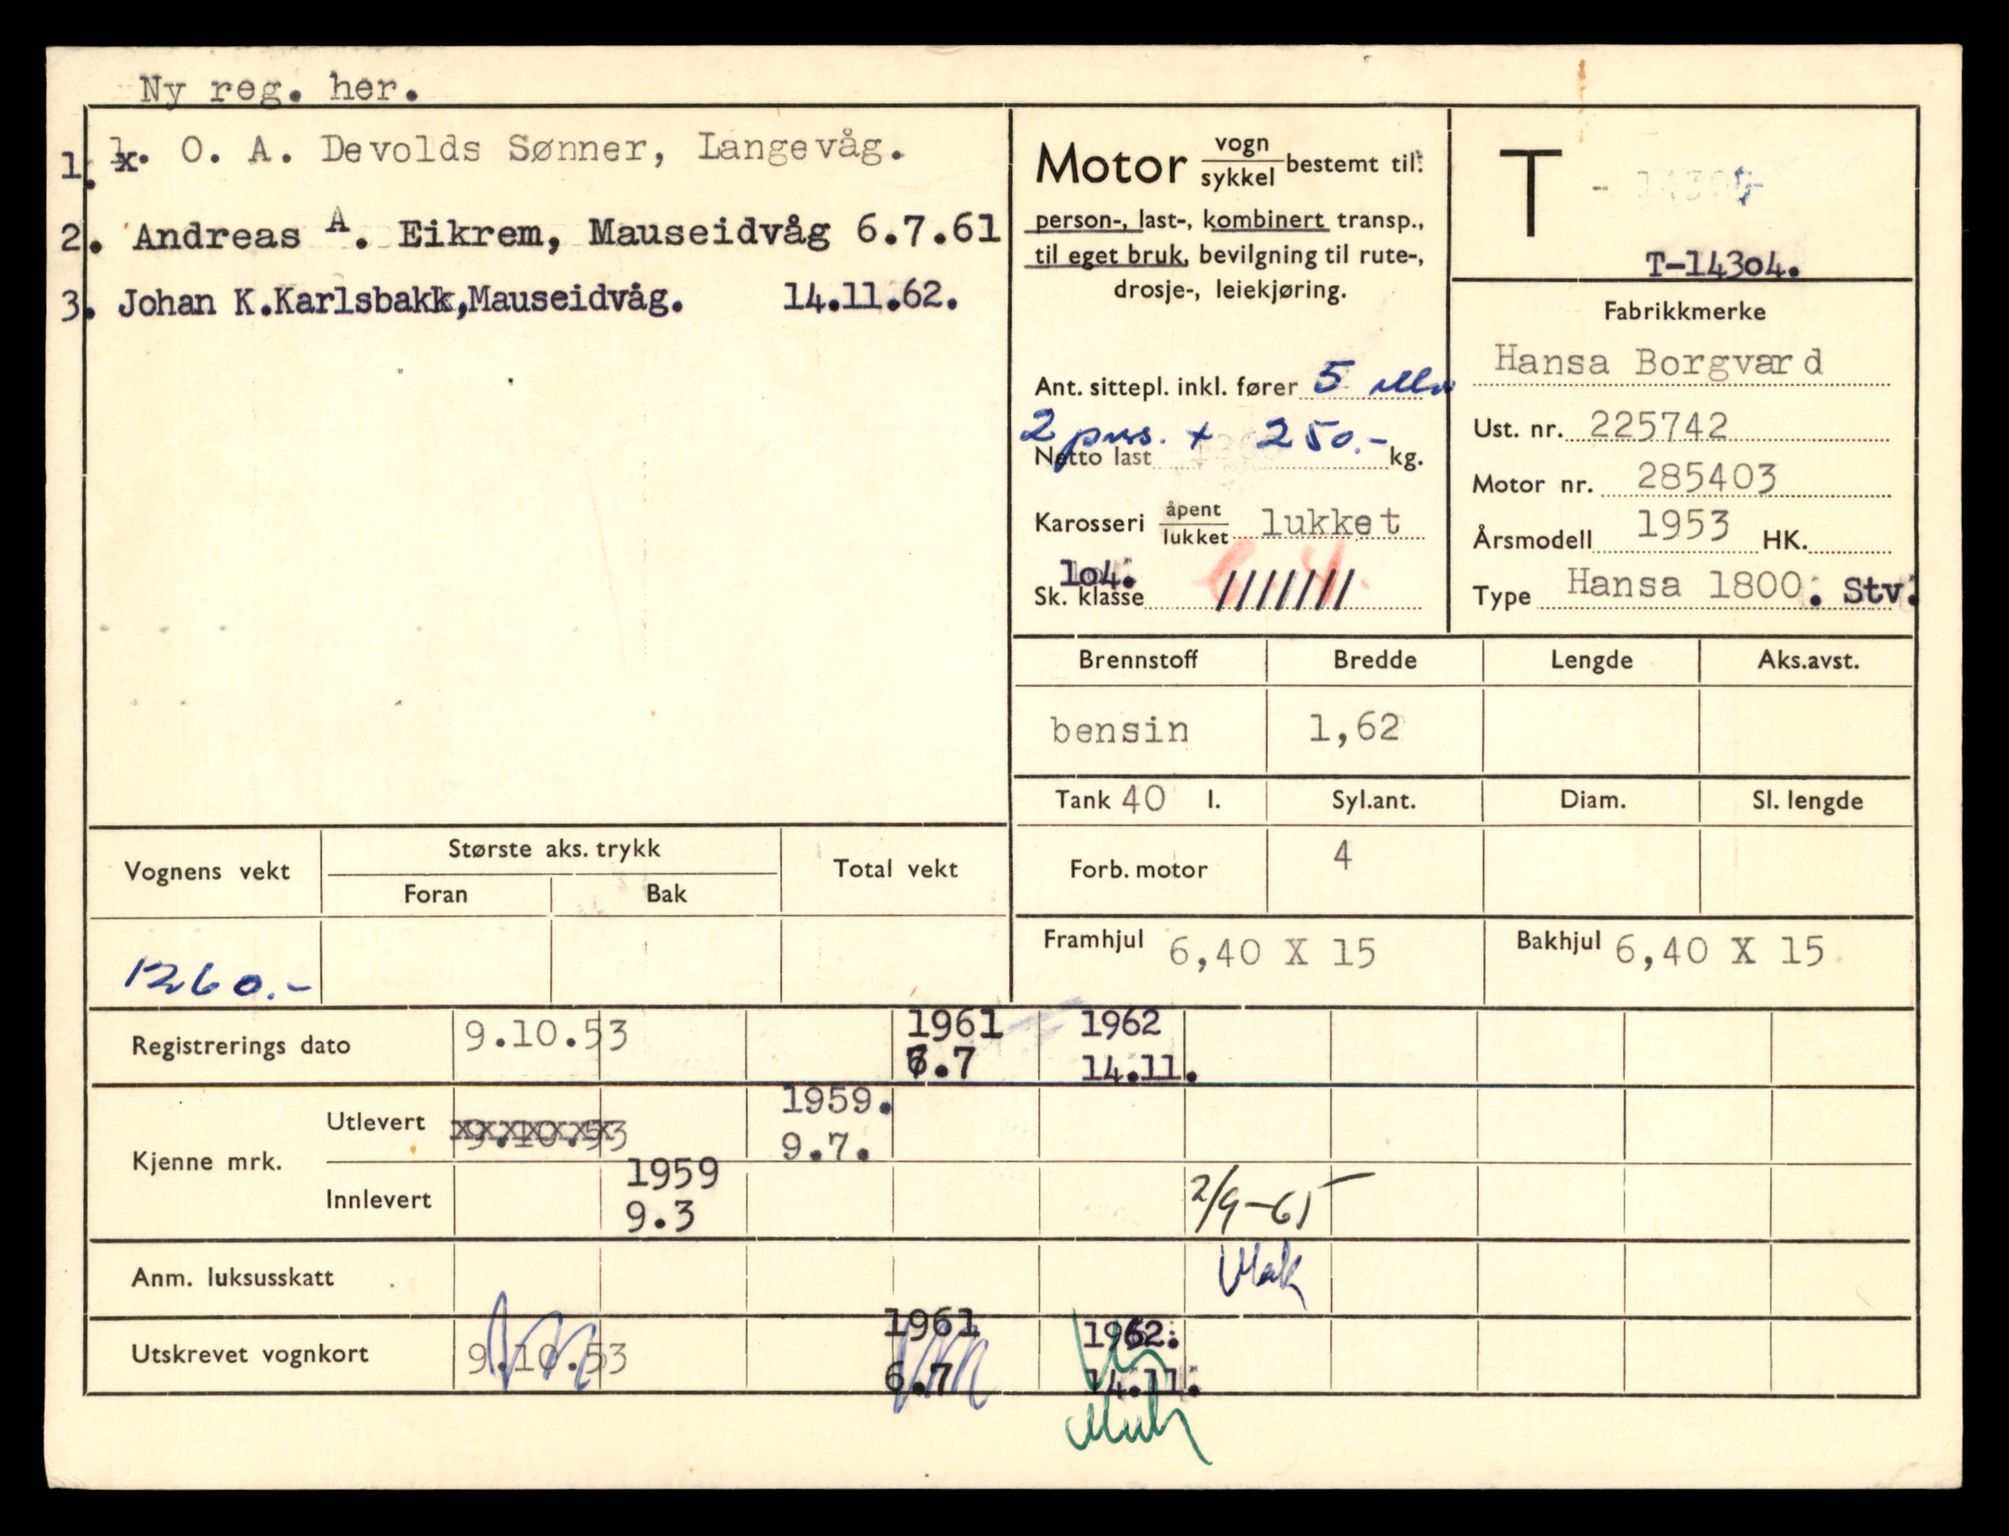 Ny reg. her.
1. O. A. Devolds Sønner, Langevåg.
2. Andreas A. Eikrem, Mauseidvåg 6.7.61
3. Johan K.Karlsbakk,Mauseidvåg. 14.11.62.
Motor vogn/sykkel bestemt til:
person-, last-, kombinert transp.,
til eget bruk, bevilgning til rute-,
drosje-, leiekjøring.
Ant. sittepl. inkl. fører 5
2 pers. + 250.-
Netto last kg.
Karosseri åpent/lukket lukket
104.
Sk. klasse
T -
T-14304.
Fabrikkmerke
Hansa Borgvard
Ust. nr. 225742
Motor nr. 285403
Årsmodell 1953 HK.
Type Hansa 1800. Stv.
Brennstoff Bredde Lengde Aks.avst.
bensin 1,62
Tank 40 l. Syl.ant. Diam. Sl. lengde
Forb. motor 4
Framhjul 6,40 X 15 Bakhjul 6,40 X 15
Vognens vekt Største aks. trykk Total vekt
Foran Bak
1260.-
Registrerings dato 9.10.53 1961 1962
6.7 14.11.
Kjenne mrk. Utlevert 9.10.53 1959.
9.7.
Innlevert 1959 2/9-65
9.3
Anm. luksusskatt
Utskrevet vognkort 9.10.53 1961 1962.
6.7 14.11.